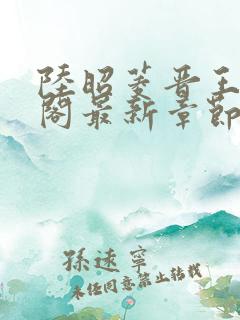 陸昭菱晋王
閣最新章節
孫遠寧
未经同意禁止转载